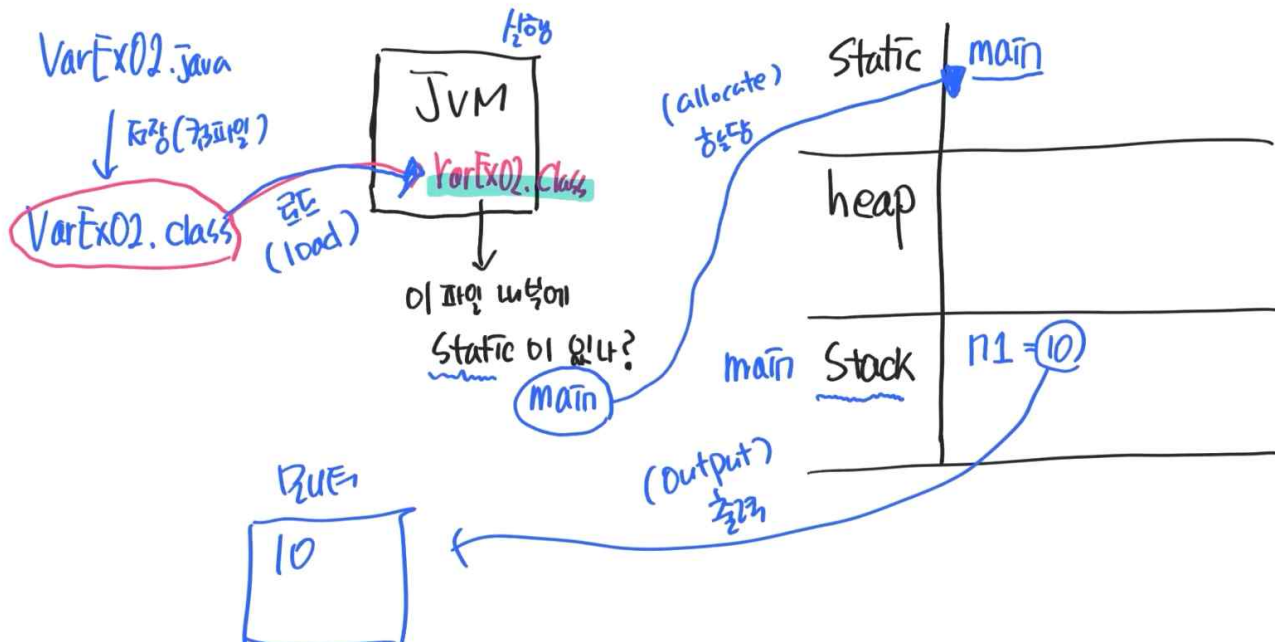 VarEx02.java
저장(컴파일)
VarEx02.class
로드
(load)
실행
JVM
VarEx02.class
이 파일 내부에
static 이 있나?
main
(allocate)
할당
static
main
heap
main
stack
n1 = 10
(output)
출력
모니터
10